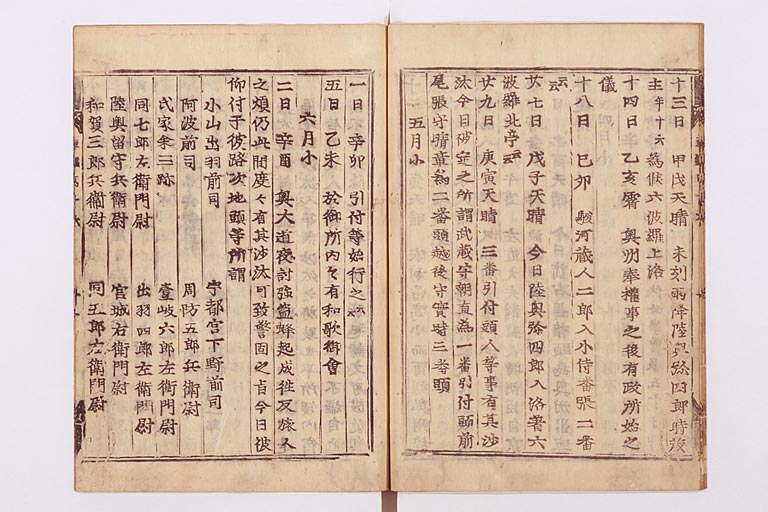 十三日 甲戌天晴 未刻雨降陸奥孫四郎時茂
主年十六為候六波羅上洛
十四日 乙亥霽 奥州奉權事之後有政所始之
儀
十八日 已夘 駿河蔵人二郎入小侍番張二番
云云
廿七日 戊子天晴 今日陸奥孫四郎入洛著六
波羅北亭云云
廿九日 庚寅天晴 三番引付頭人等事有其沙
汰今日被定之所謂武蔵守朝直為一番引付頭前
尾張守時章為二番頭越後守實時三番頭
五月小
一日 辛夘 引付等始行之云云
五日 乙未 於御所内々有和歌御會
六月小
二日 辛酉 奥大道夜討強盗蜂起成徃反旅人
之煩仍此間度々有其沙汰可致警固之旨今日被
仰付于彼路次地頭等所謂
小山出羽前司 宇都宮下野前司
阿波前司 周防五郎兵衛尉
氏家余三跡 壹岐六郎左衛門尉
同七郎左衛門尉 出羽四郎左衛門尉
陸奥留守兵衛尉 宮城右衛門尉
和賀三郎兵衛尉 同五郎左衛門尉